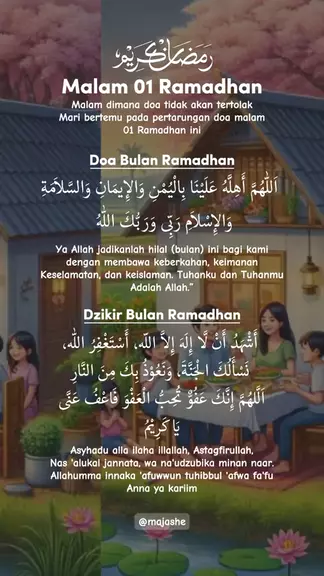 رمضان كريم
Malam 01 Ramadhan
Malam dimana doa tidak akan tertolak
Mari bertemu pada pertarungan doa malam
01 Ramadhan ini
Doa Bulan Ramadhan
اَللّٰهُمَّ أَهِلَّهُ عَلَيْنَا بِالْيُمْنِ وَالْإِيمَانِ وَالسَّلَامَةِ
وَالْإِسْلَامِ رَبِّي وَرَبُّكَ اللّٰهُ
Ya Allah jadikanlah hilal (bulan) ini bagi kami
dengan membawa keberkahan, keimanan
Keselamatan, dan keislaman. Tuhanku dan Tuhanmu
Adalah Allah.”
Dzikir Bulan Ramadhan
أَشْهَدُ أَنْ لَّا إِلٰهَ إِلَّا اللّٰه، أَسْتَغْفِرُ اللّٰه،
نَسْأَلُكَ الْجَنَّةَ، وَنَعُوْذُ بِكَ مِنَ النَّارِ
اَللّٰهُمَّ إِنَّكَ عَفُوٌّ تُحِبُّ الْعَفْوَ فَاعْفُ عَنَّى
يَا كَرِيْمُ
Asyhadu alla ilaha illallah, Astagfirullah,
Nas 'alukal jannata, wa na'udzubika minan naar.
Allahumma innaka 'afuwwun tuhibbul 'afwa fa'fu
Anna ya kariim
@majashe